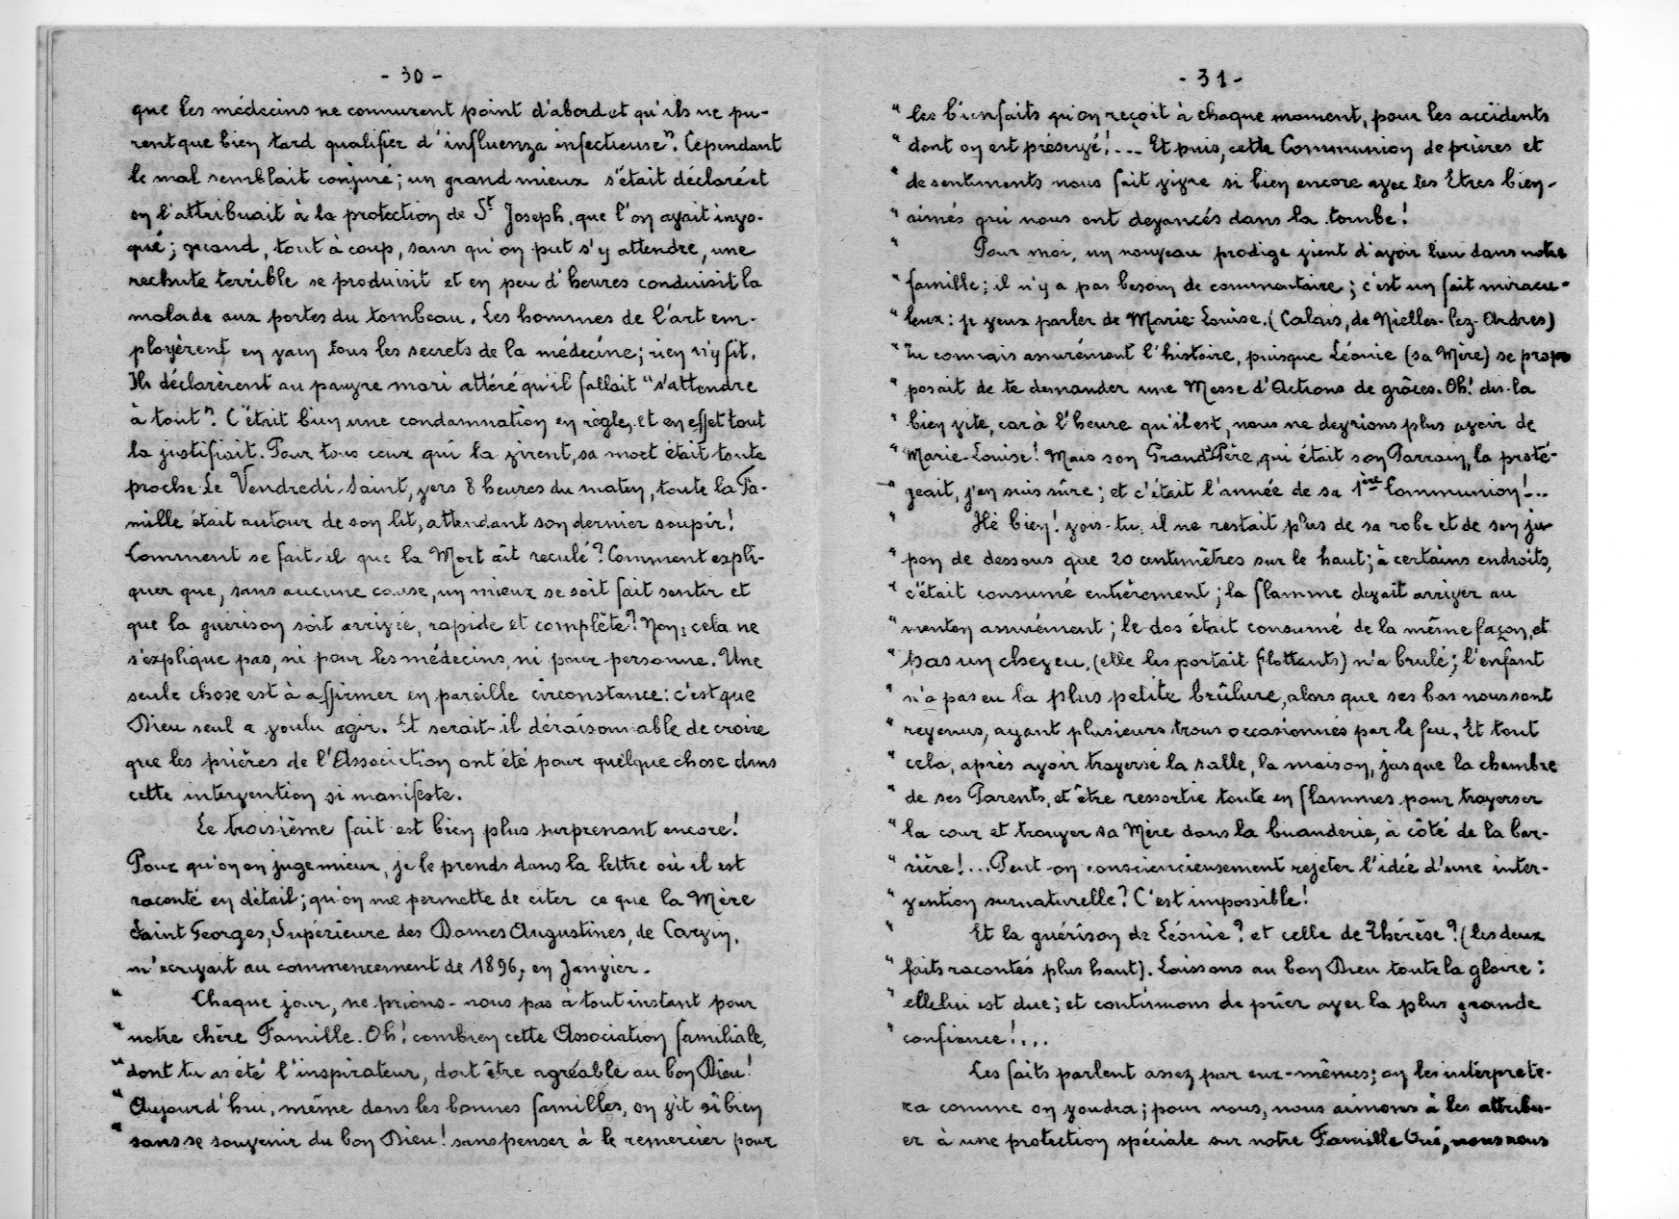 - 30 -
que les médecins ne connurent point d'abord et qu'ils ne pu-
rent que bien tard qualifier d'"influenza infectieuse". Cependant
le mal semblait conjuré; un grand mieux s'était déclaré et
on l'attribuait à la protection de St Joseph, que l'on avait invo-
qué; quand, tout à coup, sans qu'on put s'y attendre, une
rechute terrible se produisit et en peu d'heures conduisit la
malade aux portes du tombeau. Les hommes de l'art em-
ployèrent en vain tous les secrets de la médecine; rien n'y fit.
Ils déclarèrent au pauvre mari attéré qu'il fallait "s'attendre
à tout". C'était bien une condamnation en règle, et en effet tout
la justifiait. Pour tous ceux qui la virent, sa mort était toute
proche. Le Vendredi-Saint, vers 8 heures du matin, toute la Fa-
mille était autour de son lit, attendant son dernier soupir!
Comment se fait-il que la Mort ait reculé? Comment expli-
quer que, sans aucune cause, un mieux se soit fait sentir et
que la guérison soit arrivée, rapide et complète? Non; cela ne
s'explique pas, ni pour les médecins, ni pour personne. Une
seule chose est à affirmer en pareille circonstance: c'est que
Dieu seul a voulu agir. Et serait-il déraisonnable de croire
que les prières de l'Association ont été pour quelque chose dans
cette intervention si manifeste.
Le troisième fait est bien plus surprenant encore!
Pour qu'on en juge mieux, je le prends dans la lettre où il est
raconté en détail; qu'on me permette de citer ce que la Mère
Saint Georges, Supérieure des Dames Augustines, de Carvin,
m'écrivait au commencement de 1896, en Janvier.
" Chaque jour, ne prions-nous pas à tout instant pour
" notre chère Famille. Oh! combien cette Association familiale,
" dont tu as été l'inspirateur, doit être agréable au bon Dieu!
" Aujourd'hui, même dans les bonnes familles, on vit si bien
" sans se souvenir du bon Dieu! sans penser à le remercier pour
- 31 -
" les bienfaits qu'on reçoit à chaque moment, pour les accidents
" dont on est préservé!... Et puis, cette Communion de prières et
" de sentiments nous fait vivre si bien encore avec les Etres bien-
" aimés qui nous ont devancés dans la tombe!
" Pour moi, un nouveau prodige vient d'avoir lieu dans notre
" famille; il n'y a pas besoin de commentaire; c'est un fait miracu-
" leux: je veux parler de Marie-Louise. (Calais, de Nielles-lez-Ardres)
" Tu connais assurément l'histoire, puisque Léonie (sa Mère) se propo
" posait de te demander une Messe d'Actions de grâces. Oh! dis-la
" bien vite, car à l'heure qu'il est, nous ne devrions plus avoir de
" Marie-Louise! Mais son Grand'Père, qui était son Parrain, la proté-
" geait, j'en suis sûre; et c'était l'année de sa 1ère Communion!...
" Hé bien! vois-tu, il ne restait plus de sa robe et de son ju-
" pon de dessous que 20 centimètres sur le haut; à certains endroits,
" c'était consumé entièrement; la flamme devait arriver au
" menton assurément; le dos était consumé de la même façon, et
" pas un cheveu, (elle les portait flottants) n'a brulé; l'enfant
" n'a pas eu la plus petite brûlure, alors que ses bas nous sont
" revenus, ayant plusieurs trous occasionnés par le feu. Et tout
" cela, après avoir traversé la salle, la maison, jusque la chambre
" de ses Parents, et être ressortie toute en flammes pour traverser
" la cour et trouver sa Mère dans la buanderie, à côté de la bar-
" rière!... Peut-on consciencieusement rejeter l'idée d'une inter-
" vention surnaturelle? C'est impossible!
" Et la guérison de Léonie? et celle de Thérèse? (les deux
" faits racontés plus haut). Laissons au bon Dieu toute la gloire:
" elle lui est due; et continuons de prier avec la plus grande
" confiance!...
Les faits parlent assez par eux-mêmes; on les interprète-
ra comme on voudra; pour nous, nous aimons à les attribu-
er à une protection spéciale sur notre Famille Oui, nous nous